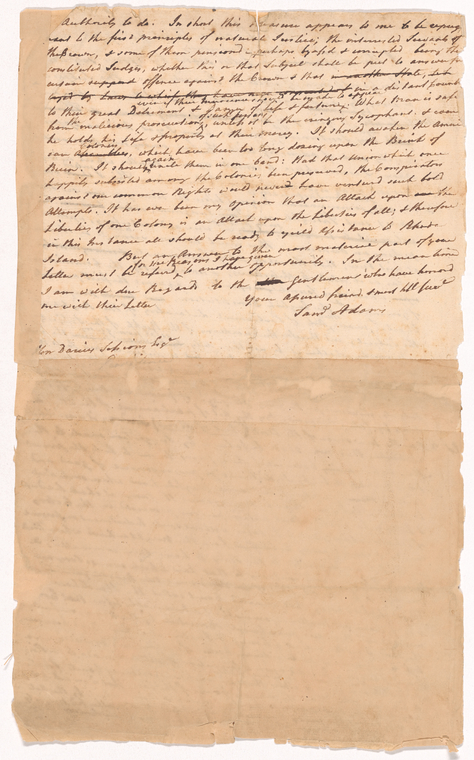 Authority to do. In short, this measure appears to me to be repug
nant to the first principles of natural Justice; the interested Servants of
the Crown, & some of them pensiond & perhaps byased & corrupted being the
constituted Judges, whether this or that Subject shall be put to answer for
offence against the Crown & that in a distant
to their great Detriment & Hazard of Life & Fortune, even if their Innocence
What Man is safe
from malicious prosecution of such persons, unless he is the cringing Sycophant, & even
he holds his life & property at their mercy. It should awaken the Ameri
can Colonies, which have been too long dozing upon the Brink of
Ruin. It should again unite them in one band: Had that Union which once
happily subsisted among the Colonies been preserved, the Conspirators
against our common Rights would never have ventured such bold
Attempts. It has ever been my opinion that an Attack upon the
Liberties of one Colony is an Attack upon the Liberties of all; & therefore
in this Instance all should be ready to yield Assistance to Rhode
Island. But an Answer to the most material part of your
Letter must for the Reasons I have given be referd to another opportunity. In the mean time
I am with due Regards to the Gentlemen who have honord
me with their Letter
Your assured friend & most hble servt
Saml Adams
Hon Darius Sessions Esqr